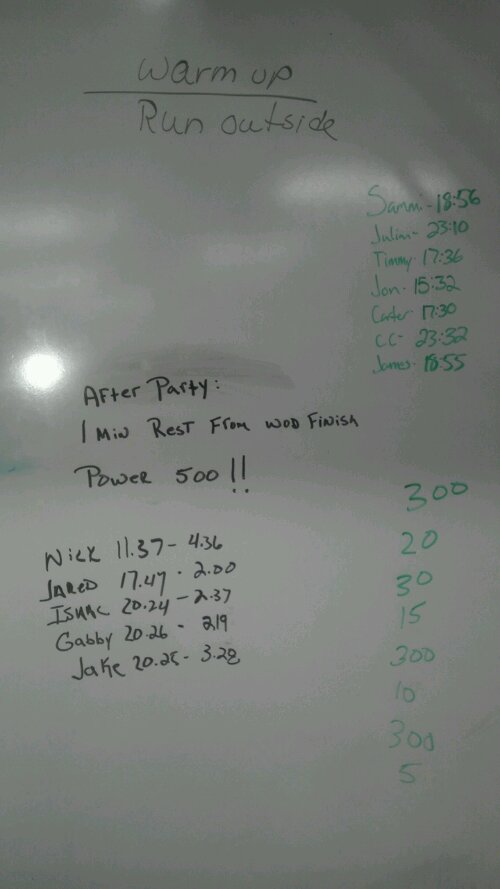 Warm up
Run outside
Sammi - 18:56
Julian - 23:10
Timmy - 17:36
Jon - 15:32
Carter - 17:30
CC - 23:32
James - 18:55
After Party:
1 Min Rest From WOD Finish
Power 500 !!
Nick 11.37 - 4.36
Jared 17.47 - 2.00
Isaac 20.24 - 2.37
Gabby 20.26 - 219
Jake 20.25 - 3.28
300
20
30
15
300
10
300
5